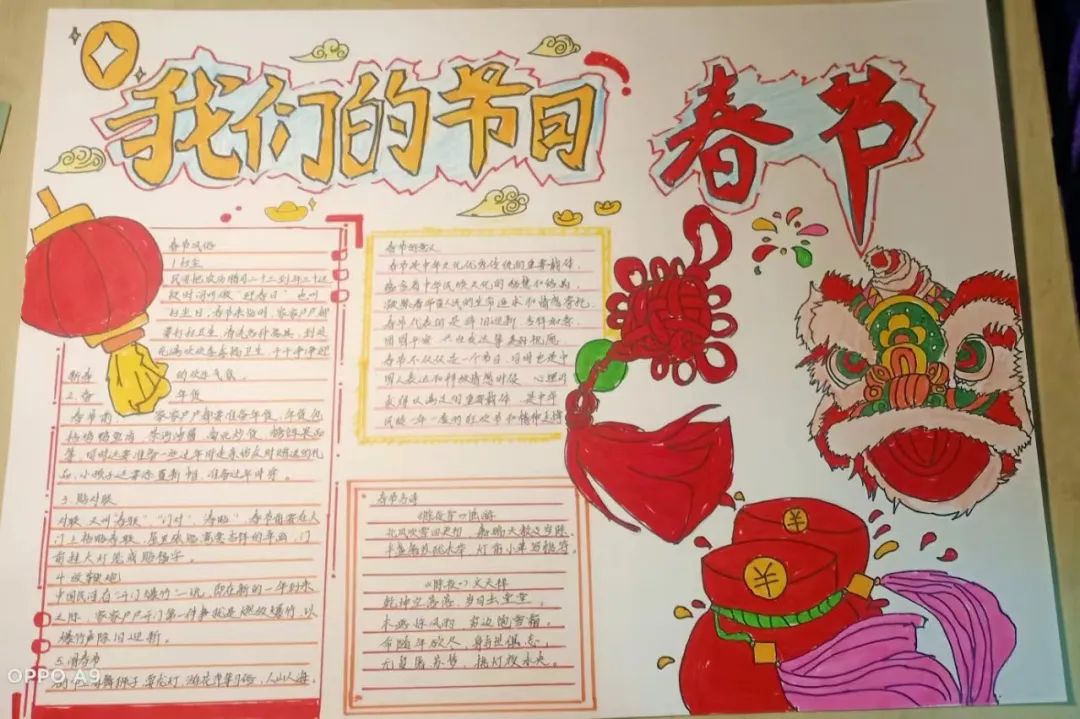 我们的节日 春节
春节风俗
1.扫尘
民谚把农历腊月二十三到年三十这
段时间叫做"迎春日"也叫
扫尘日,春节来临时,家家户户都
要打扫卫生,清洗各种器具,到处
充满欢欢喜喜搞卫生、干干净净迎
新春 的欢乐气氛。
2.备 年货
春节前 家家户户都要准备年货,年货包
括鸡鸭鱼肉、茶酒油酱、南北炒货、糖饵果品
等,同时还要准备一些过年时走亲访友时赠送的礼
品,小孩子还要添置新帽,准备过年时穿。
3.贴对联
对联又叫"春联"、"门对"、"
门上
前挂大灯笼或贴福字。
4.放鞭炮
中国民间有"开门爆竹"一说,即在新的一年到来
之际,家家户户开门第一件事就是燃放爆竹,以
爆竹声除旧迎新。
5.闹春节
舞狮子 耍龙灯 游花市 人山人海。
春节的意义
春节是中华文化优秀传统的重要载体,
蕴含着中华民族文化的智慧和结晶,
凝聚着华夏人民的生命追求和情感寄托,
春节代表的是辞旧迎新 吉祥如意、
团圆平安 兴旺发达等美好祝愿
春节不仅仅是一个节日,同时也是中
国人表达和释放情感 心理诉
求得以满足的重要载体,是中华
民族一年一度的狂欢节和精神支撑
春节古诗
《除夜雪》陆游
北风吹雪四更初,嘉瑞天教及岁除。
半盏屠苏犹未举,灯前小草写桃符。
《除夜》文天祥
乾坤空落落,岁月去堂堂。
末路惊风雨,穷边饱雪霜。
命随年欲尽,身与世俱忘。
无复屠苏梦,挑灯夜未央。
OPPO A9